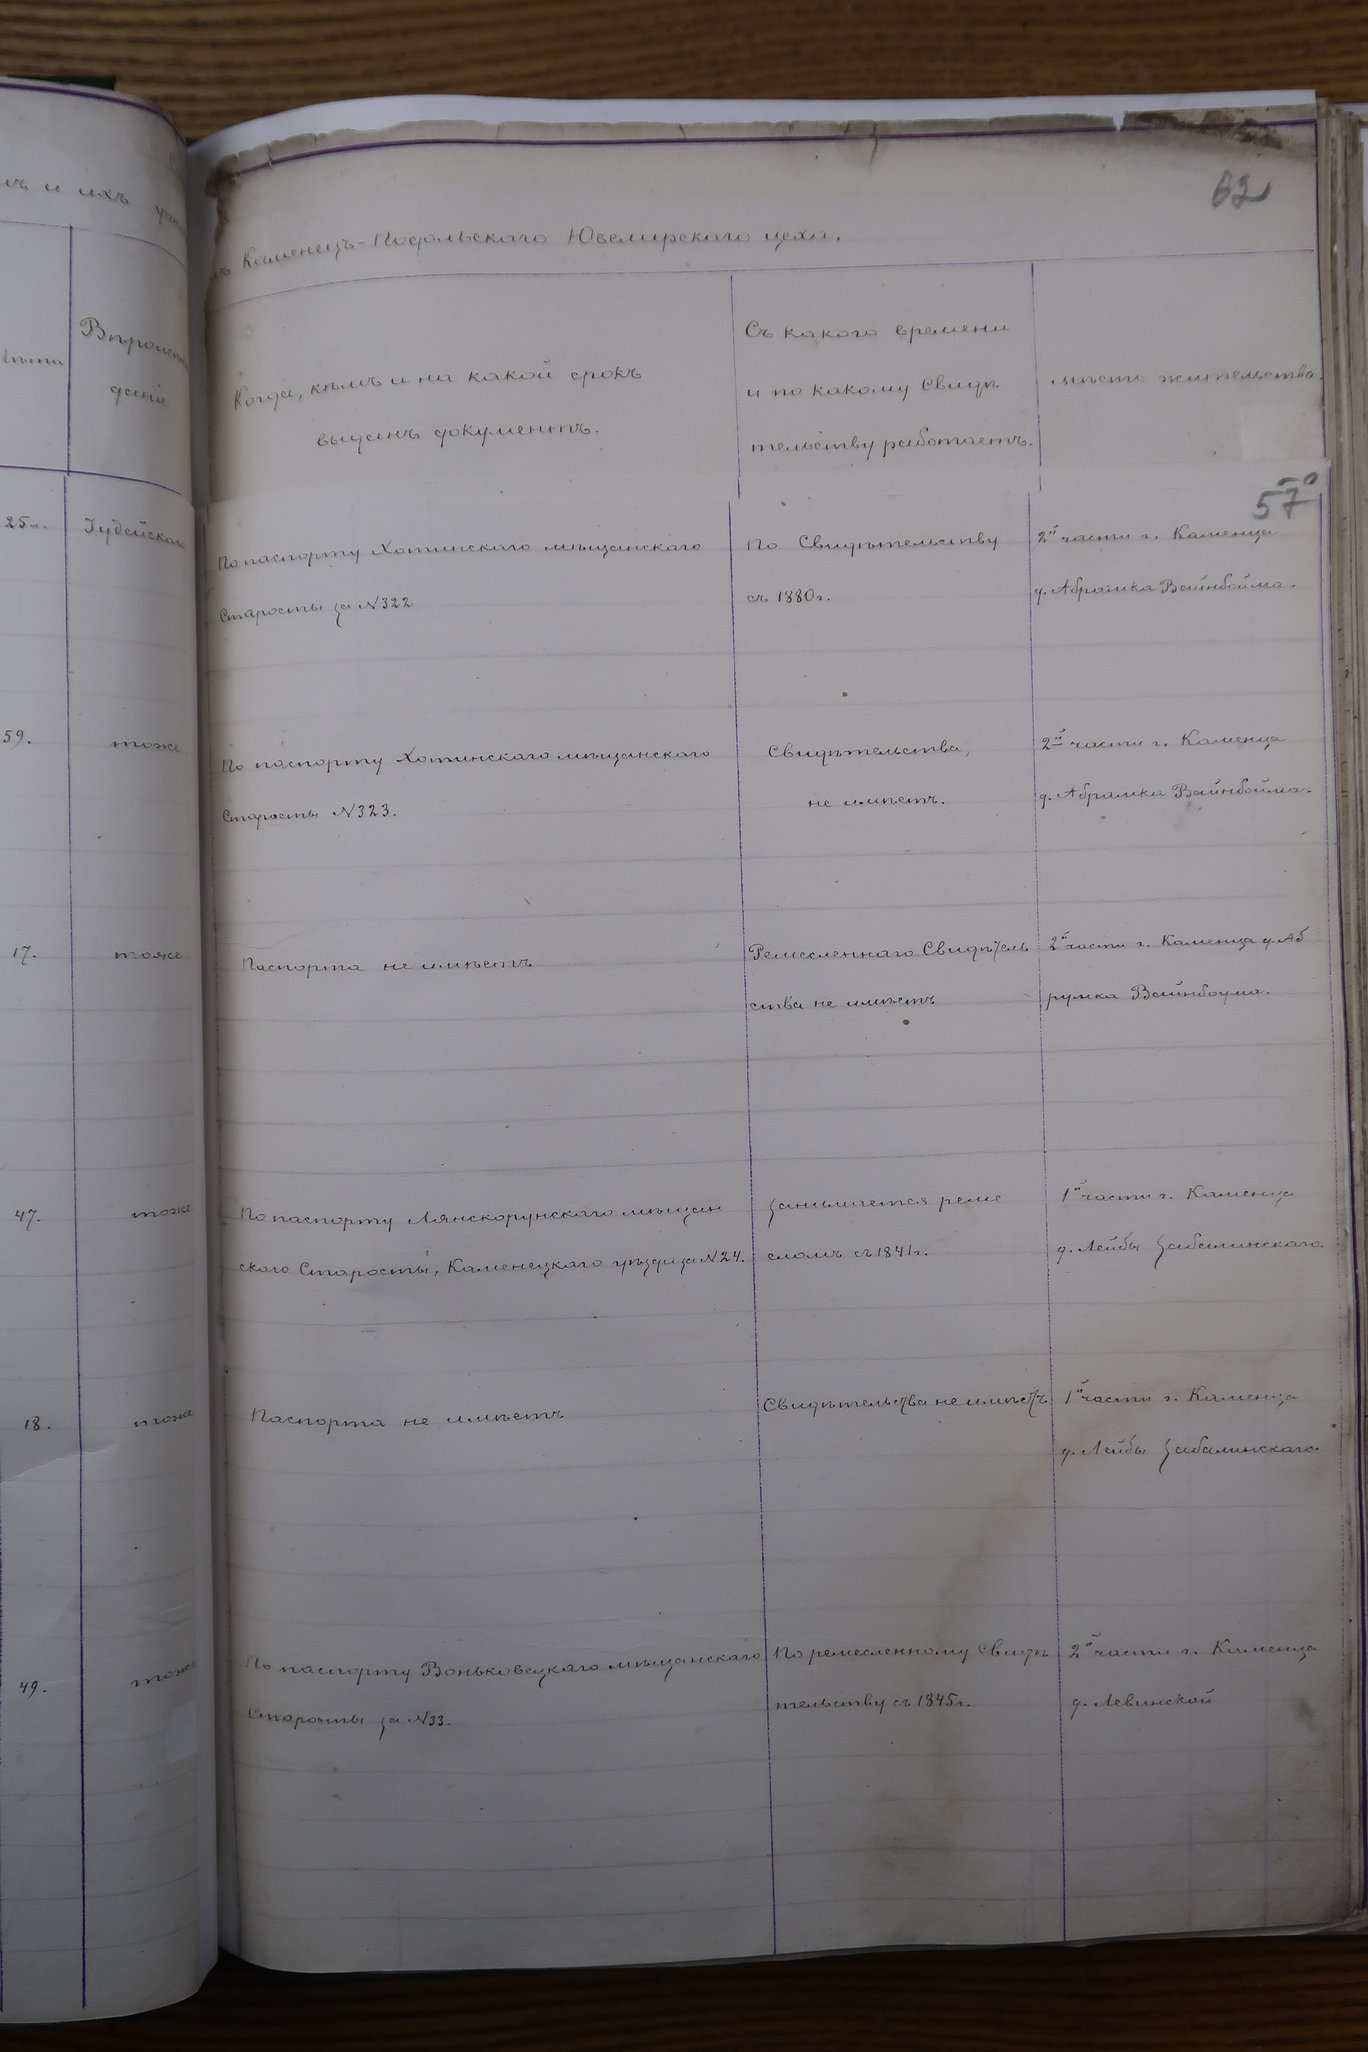 62
лъ и ихъ учен
въ Каменецъ-Подольскаго Ювелирскаго цеха.
лѣта
Вѣроиспов
даніе
Когда, кѣмъ и на какой срокъ
выданъ документъ.
Съ какого времени
и по какому Свидѣ
тельству работаетъ.
мѣсто жительства.
57
25 л.
Іудейскаго
По паспорту Хотинскаго мѣщанскаго
Старосты за №322
По Свидѣтельству
съ 1880 г.
2й части г. Каменца
д. Абрамка Вайнбойма.
59.
тоже
По паспорту Хотинскаго мѣщанскаго
Старосты №323.
Свидѣтельства,
не имѣетъ.
2й части г. Каменца
д. Абрамка Вайнбойма.
17.
тоже
Паспорта не имѣетъ
Ремесленнаго Свидѣтель
ства не имѣетъ
2й части г. Каменца д. Аб
румка Вайнбоума.
47.
тоже
По паспорту Лянскорунскаго мѣщан
скаго Старосты, Каменецкаго уѣзда за №24.
занимается реме
сломъ съ 1841 г.
1й части г. Каменца
д. Лейбы Забалинскаго.
18.
тоже
Паспорта не имѣетъ
Свидѣтельства не имѣетъ
1й части г. Каменца
д. Лейбы Забалинскаго.
49.
тоже
По паспорту Воньковецкаго мѣщанскаго
Старосты за №33.
По ремесленному Свидѣ
тельству съ 1845 г.
2й части г. Каменца
д. Левинской